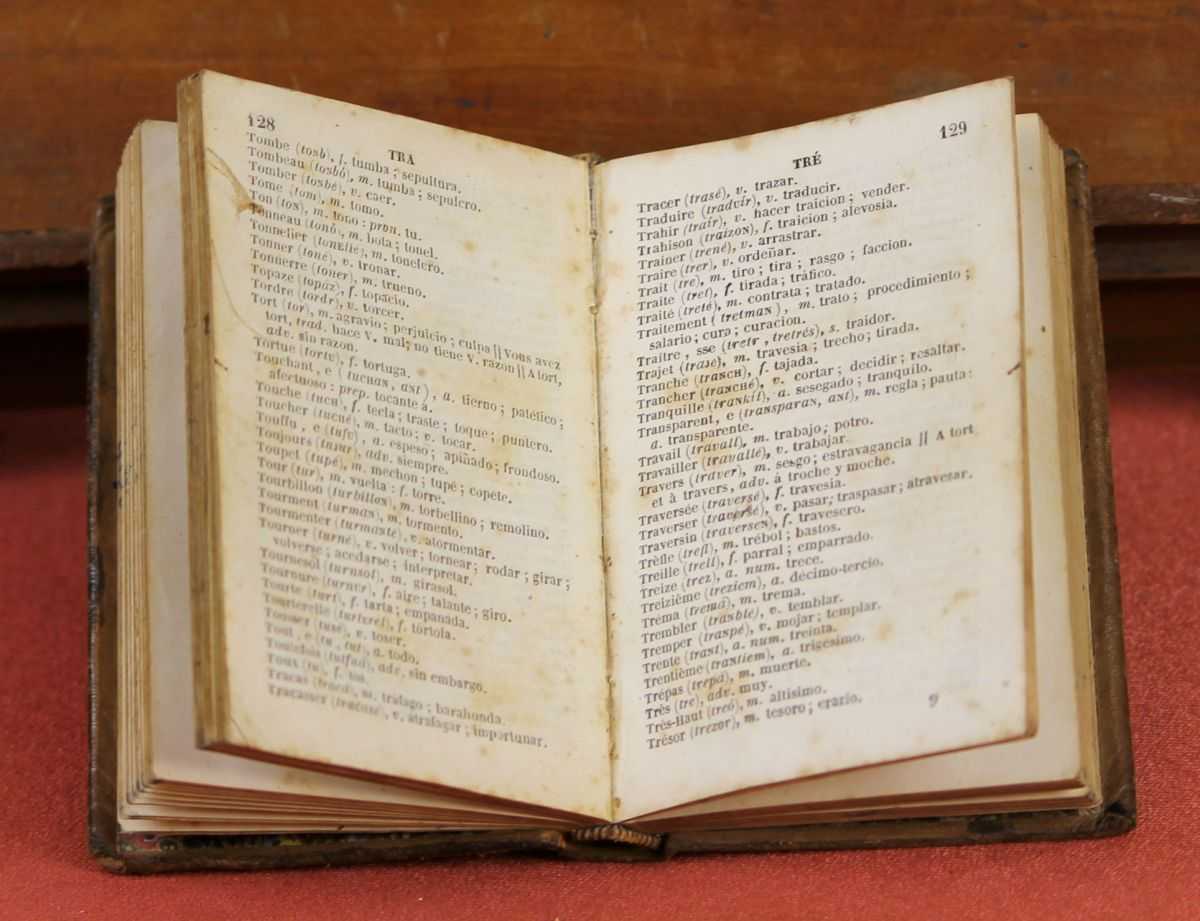 128
TRA
Tombe (tosb), f. tumba; sepultura.
Tombeau (tosbó), m. tumba; sepulcro.
Tomber (tosbé), v. caer.
Tome (tom), m. tomo.
Ton (ton), m. tono: pron. tu.
Tonneau (tonó), m. bota; tonel.
Tonnelier (tonelié), m. tonelero.
Tonner (toné), v. tronar.
Tonnerre (toner), m. trueno.
Topaze (topaz), f. topacio.
Tordre (tordr), v. torcer.
Tort (tor), m. agravio; perjuicio; culpa || Vous avez
tort, trad. hace V. mal; no tiene V. razon || A tort,
adv. sin razon.
Tortue (tortu), f. tortuga.
Touchant, e (tuchan, ant), a. tierno; patético;
afectuoso: prep. tocante á.
Touche (tuch), f. tecla; traste; toque; puntero.
Toucher (tuché), m. tacto; v. tocar.
Touffu, e (tufu), a. espeso; apiñado; frondoso.
Toujours (tujur), adv. siempre.
Toupet (tupé), m. mechon; tupé; copete.
Tour (tur), m. vuelta: f. torre.
Tourbillon (turbillon), m. torbellino; remolino.
Tourment (turman), m. tormento.
Tourmenter (turmanté), v. atormentar.
Tourner (turné), v. volver; tornear; rodar; girar;
volverse; acedarse; interpretar.
Tournesol (turnsol), m. girasol.
Tournure (turnur), f. aire; talante; giro.
Tourte (turt), f. tarta; empanada.
Tourterelle (turterel), f. tórtola.
Tousser (tusé), v. toser.
Tout, e (tu, tut), a. todo.
Toutefois (tutfuá), adv. sin embargo.
Toux (tu), f. tos.
Tracas (tracá), m. trafago; barahunda.
Tracasser (tracasé), v. atrafagar; importunar.
129
TRÉ
Tracer (trasé), v. trazar.
Traduire (traduír), v. traducir.
Trahir (trair), v. hacer traicion; vender.
Trahison (traizon), f. traicion; alevosia.
Trainer (trené), v. arrastrar.
Traire (trer), v. ordeñar.
Trait (tre), m. tiro; tira; rasgo; faccion.
Traite (tret), f. tirada; tráfico.
Traité (treté), m. contrata; tratado.
Traitement (tretman), m. trato; procedimiento;
salario; cura; curacion.
Traitre, sse (tretr, tretrés), s. traidor.
Trajet (trasé), m. travesia; trecho; tirada.
Tranche (tranch), f. tajada.
Trancher (tranché), v. cortar; decidir; resaltar.
Tranquille (trankil), a. sesegado; tranquilo.
Transparent, e (transparan, ant), m. regla; pauta:
a. transparente.
Travail (travall), m. trabajo; potro.
Travailler (travallé), v. trabajar.
Travers (traver), m. sesgo; estravagancia || A tort
et à travers, adv. á troche y moche.
Traversée (traversé), f. travesia.
Traverser (traversé), v. pasar; traspasar; atravesar.
Traversin (traversen), f. travesero.
Trèfle (trefl), m. trébol; bastos.
Treille (trell), f. parral; emparrado.
Treize (trez), a. num. trece.
Treizième (treziem), a. décimo-tercio.
Tréma (tremá), m. trema.
Trembler (tranblé), v. temblar.
Tremper (tranpé), v. mojar; templar.
Trente (trant), a. num. treinta.
Trentième (trantiem), a. trigésimo.
Trépas (trepa), m. muerte.
Très (tre), adv. muy.
Très-Haut (treó), m. altisimo.
Trésor (trezor), m. tesoro; erario.
9